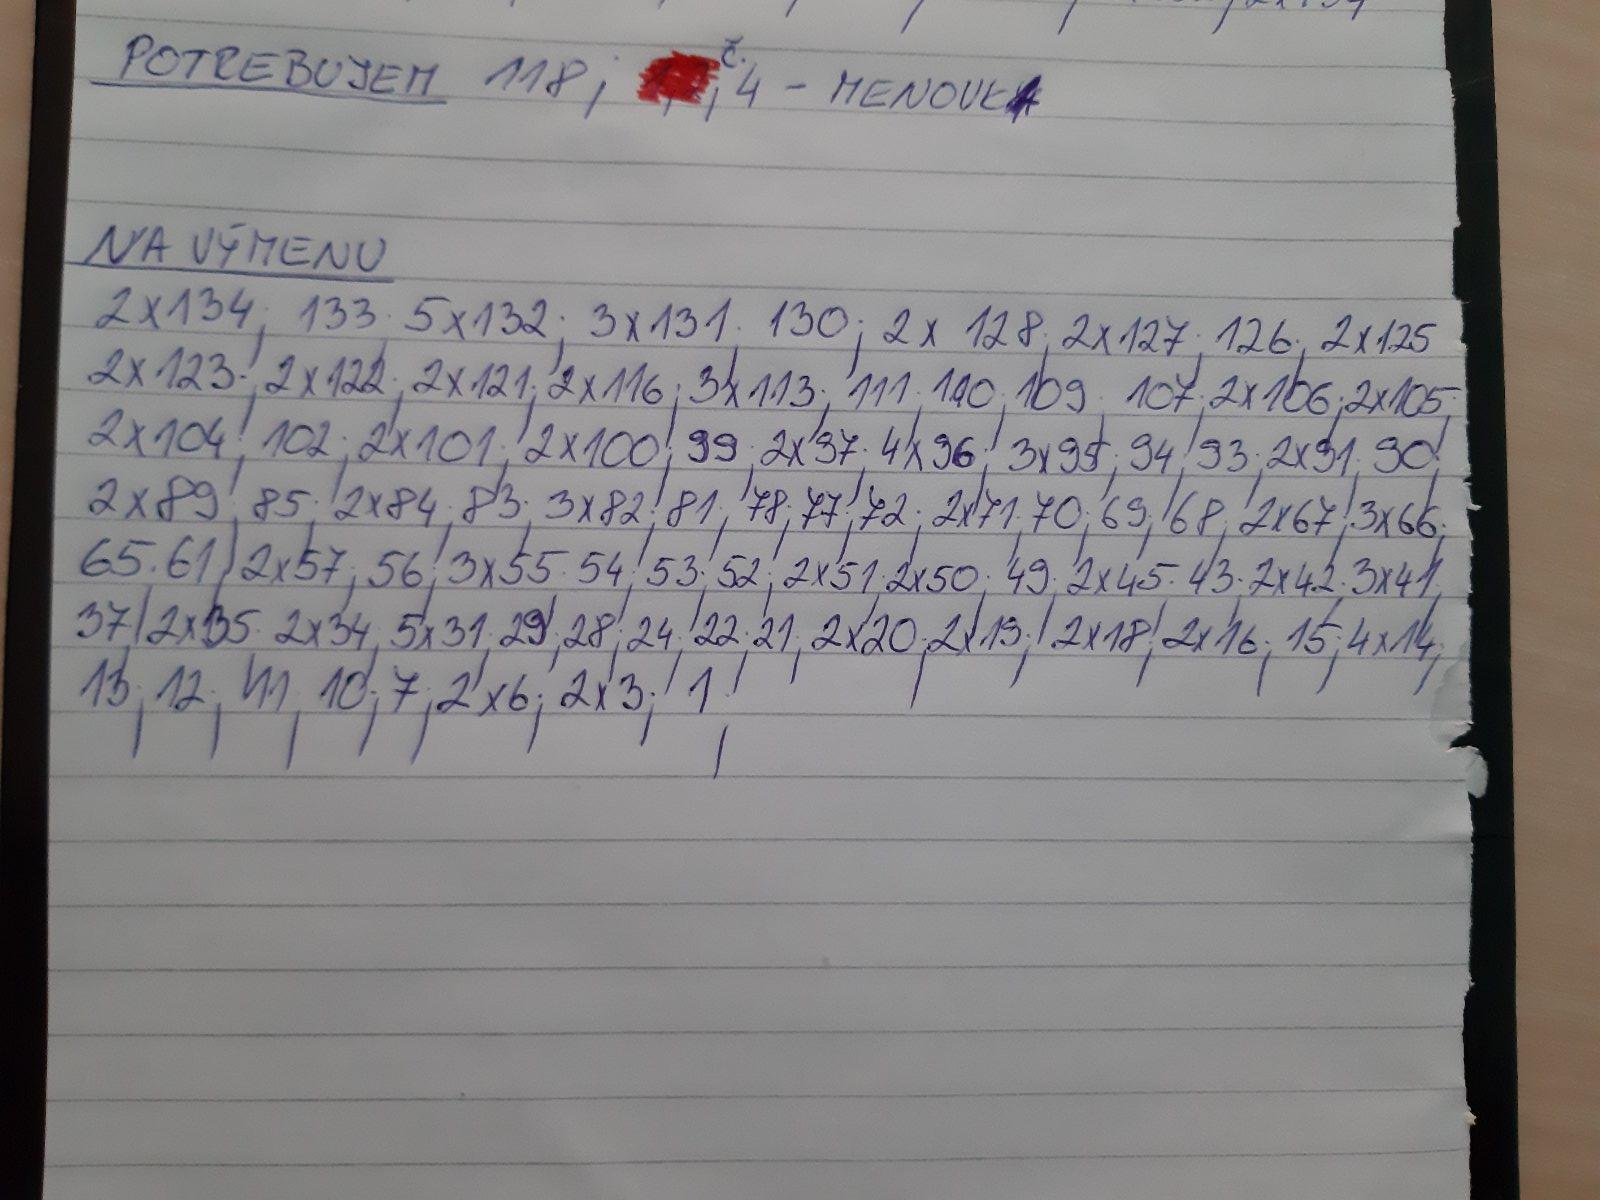 POTREBUJEM 118; č. 4 - MENOVKA
NA VÝMENU
2x134; 133; 5x132; 3x131; 130; 2x 128; 2x127; 126; 2x125
2x123; 2x122; 2x121; 2x116; 3x113; 111; 110; 109; 107; 2x106; 2x105;
2x104; 102; 2x101; 2x100; 99; 2x97; 4x96; 3x95; 94; 93; 2x91; 90;
2x89; 85; 2x84; 83; 3x82; 81; 78; 77; 72; 2x71; 70; 69; 68; 2x67; 3x66;
65; 61; 2x57; 56; 3x55; 54; 53; 52; 2x51; 2x50; 49; 2x45; 43; 2x42; 3x41;
37; 2x35; 2x34; 5x31; 29; 28; 24; 22; 21; 2x20; 2x19; 2x18; 2x16; 15; 4x14;
13; 12; 11; 10; 7; 2x6; 2x3; 1;